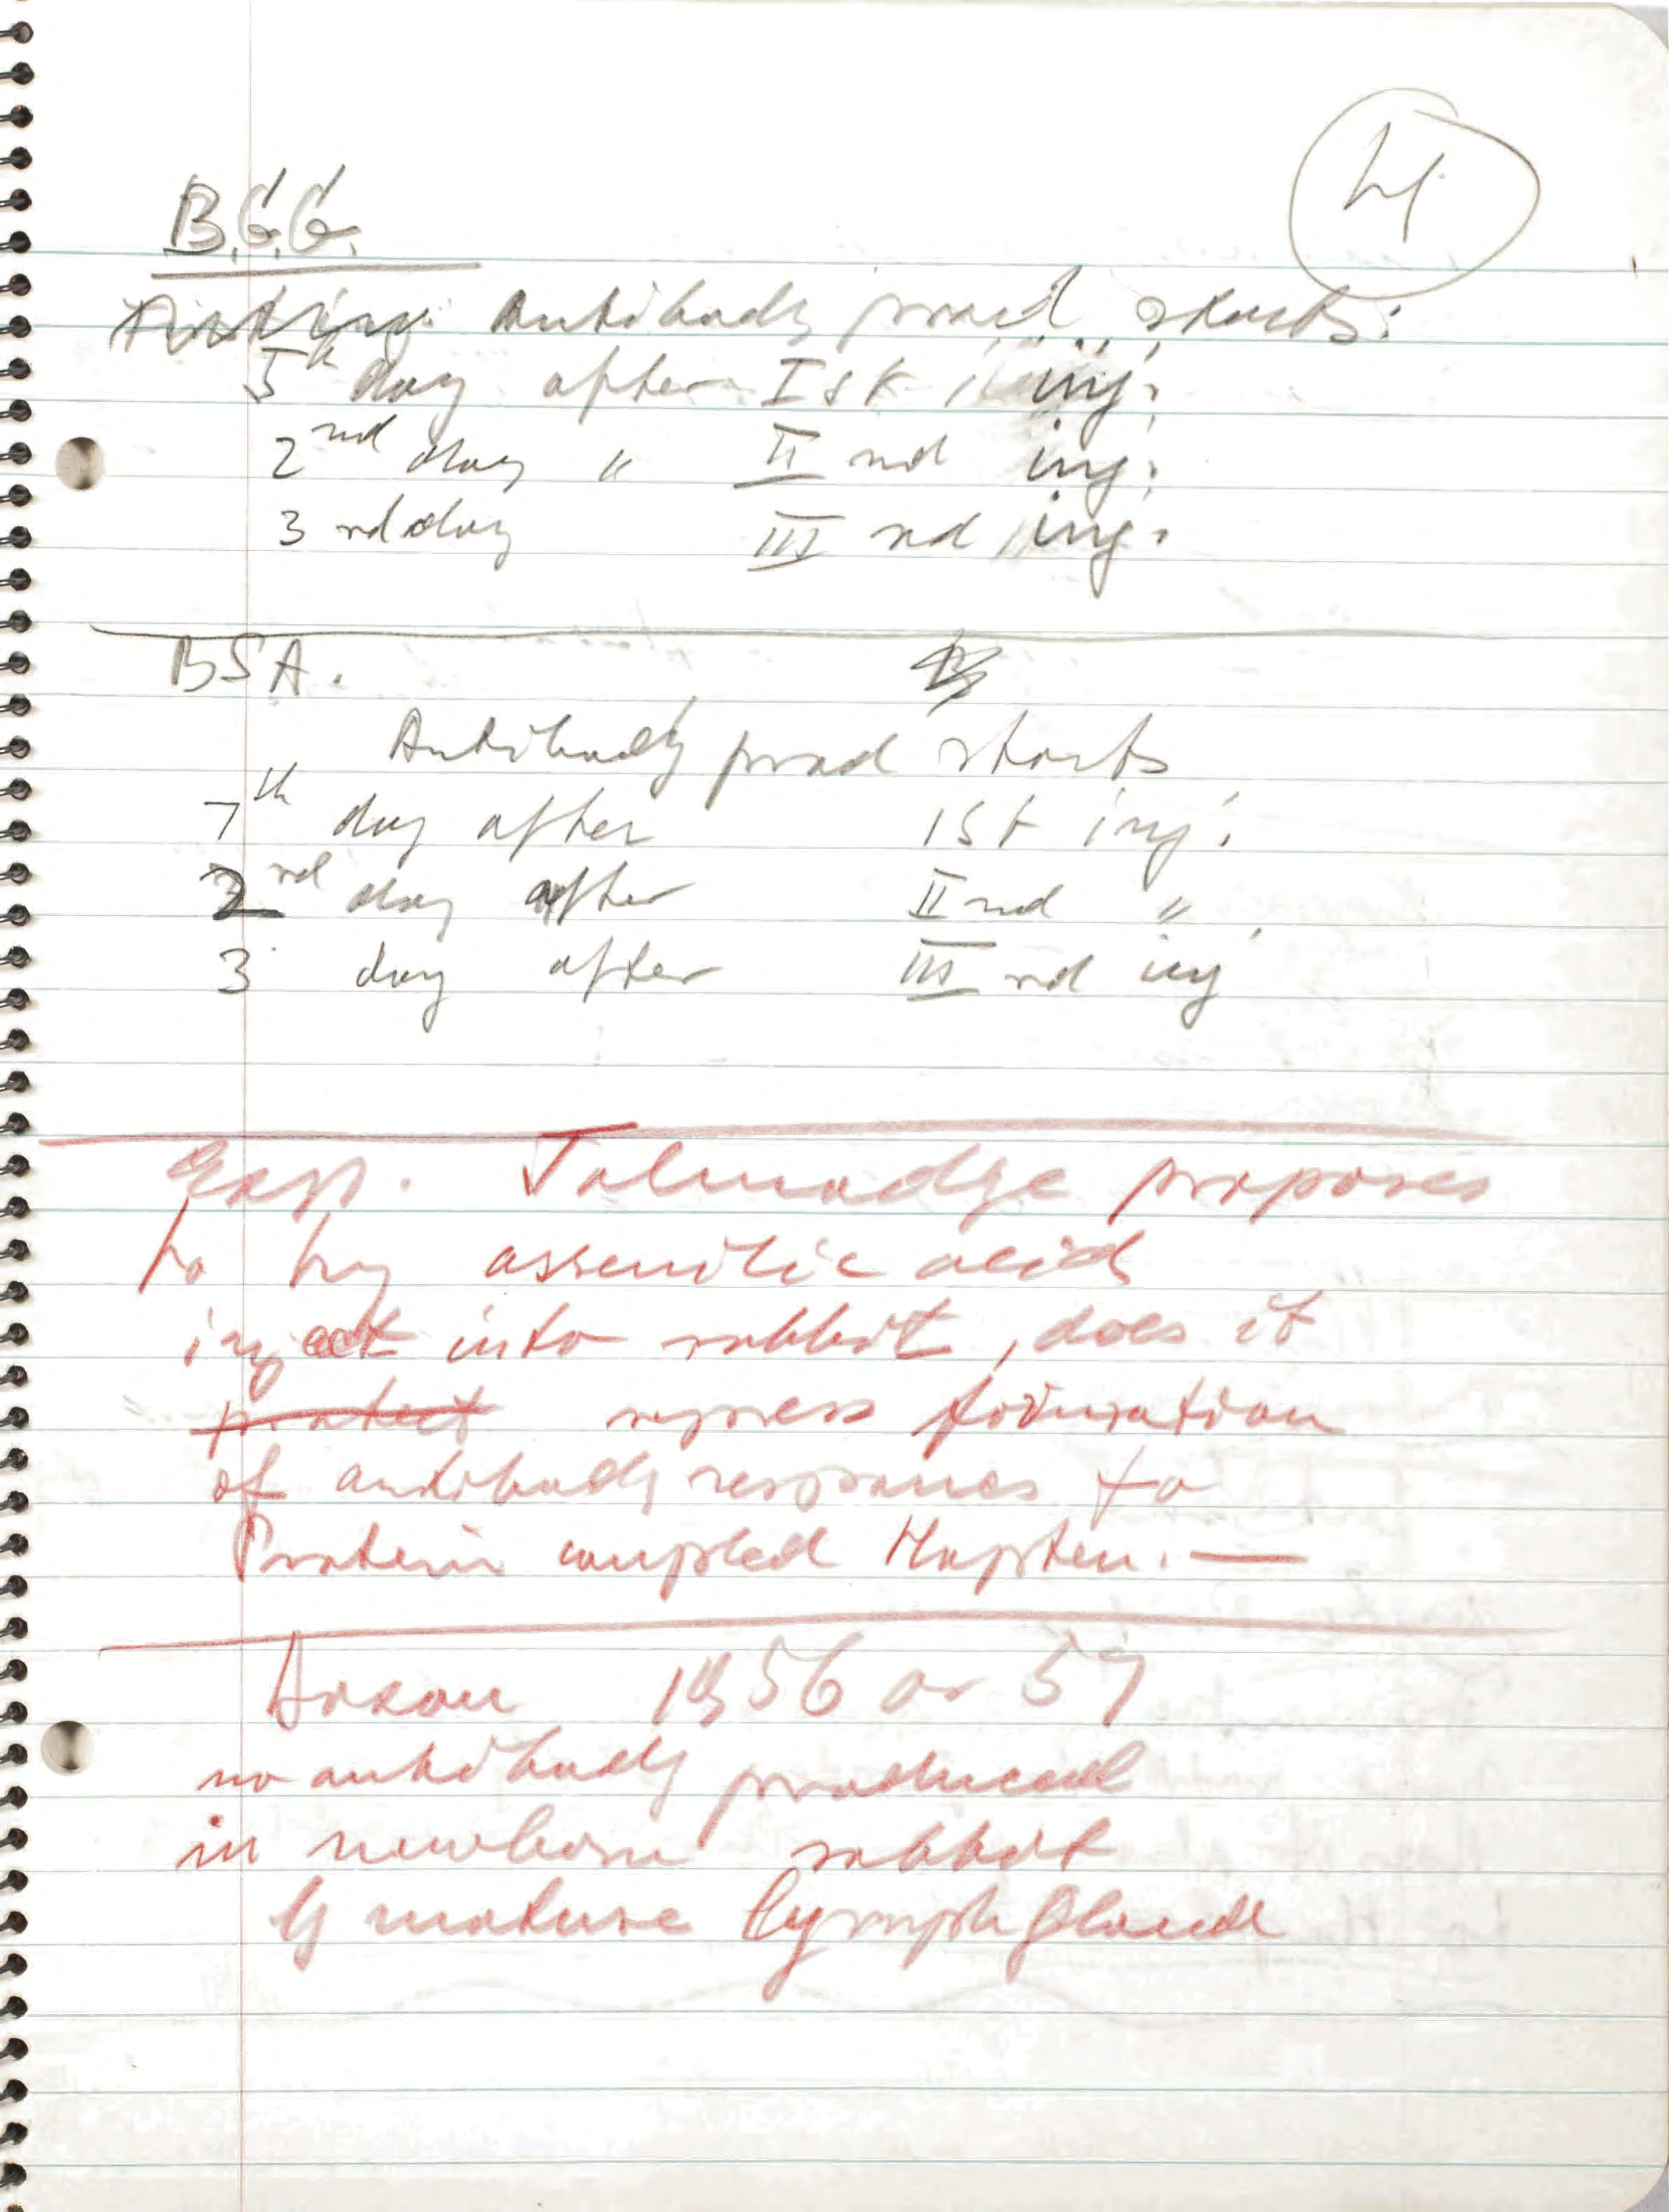 4
B.G.G.
Antibody prod. starts:
5th day after Ist inj.
2nd day " II nd inj.
3 rd day III rd inj.
BSA.
Antibody prod starts
7th day after 1st inj.
2nd day after II nd "
3 day after III rd inj
Exp. Talmadge proposes
to try assenilic acid
inject into rabbit, does it
protect repress formation
of antibody responses to
Protein coupled Hapten. —
Dixon 1956 or 57
no antibody produced
in newborn rabbit
by mature lymph gland